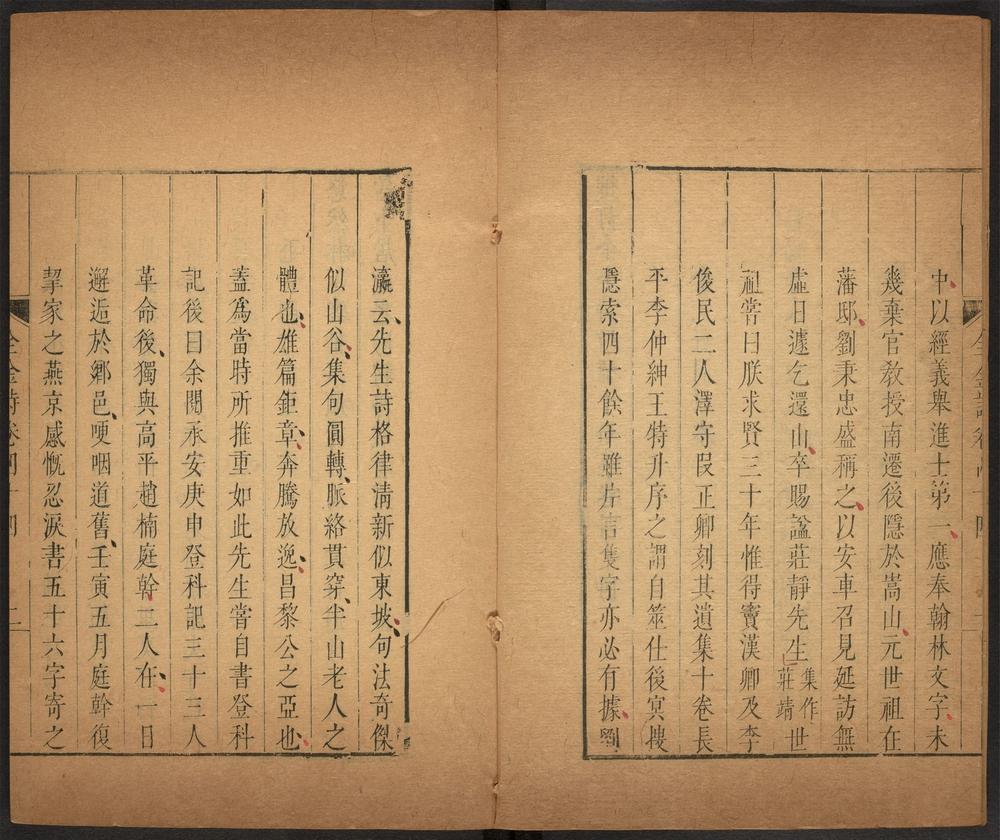 中以經義舉進士第一應奉翰林文字未
幾棄官敎授南遷後隱於嵩山元世祖在
藩邸劉秉忠盛稱之以安車召見延訪無
虛日遽乞還山卒賜諡莊靜先生集作莊靖世
祖嘗曰朕求賢三十年惟得竇漢卿及李
俊民二人澤守段正卿刻其遺集十卷長
平李仲紳王特升序之謂自筮仕後冥搜
隱索四十餘年雖片言隻字亦必有據劉
瀛云先生詩格律淸新似東坡句法奇傑
似山谷集句圓轉脈絡貫穿半山老人之
體也雄篇鉅章奔騰放逸昌黎公之亞也
蓋爲當時所推重如此先生嘗自書登科
記後曰余閱承安庚申登科記三十三人
革命後獨與高平趙楠庭幹二人在一日
邂逅於鄉邑哽咽道舊壬寅五月庭幹復
挈家之燕京感慨忍淚書五十六字寄之
全金詩卷四十四 二